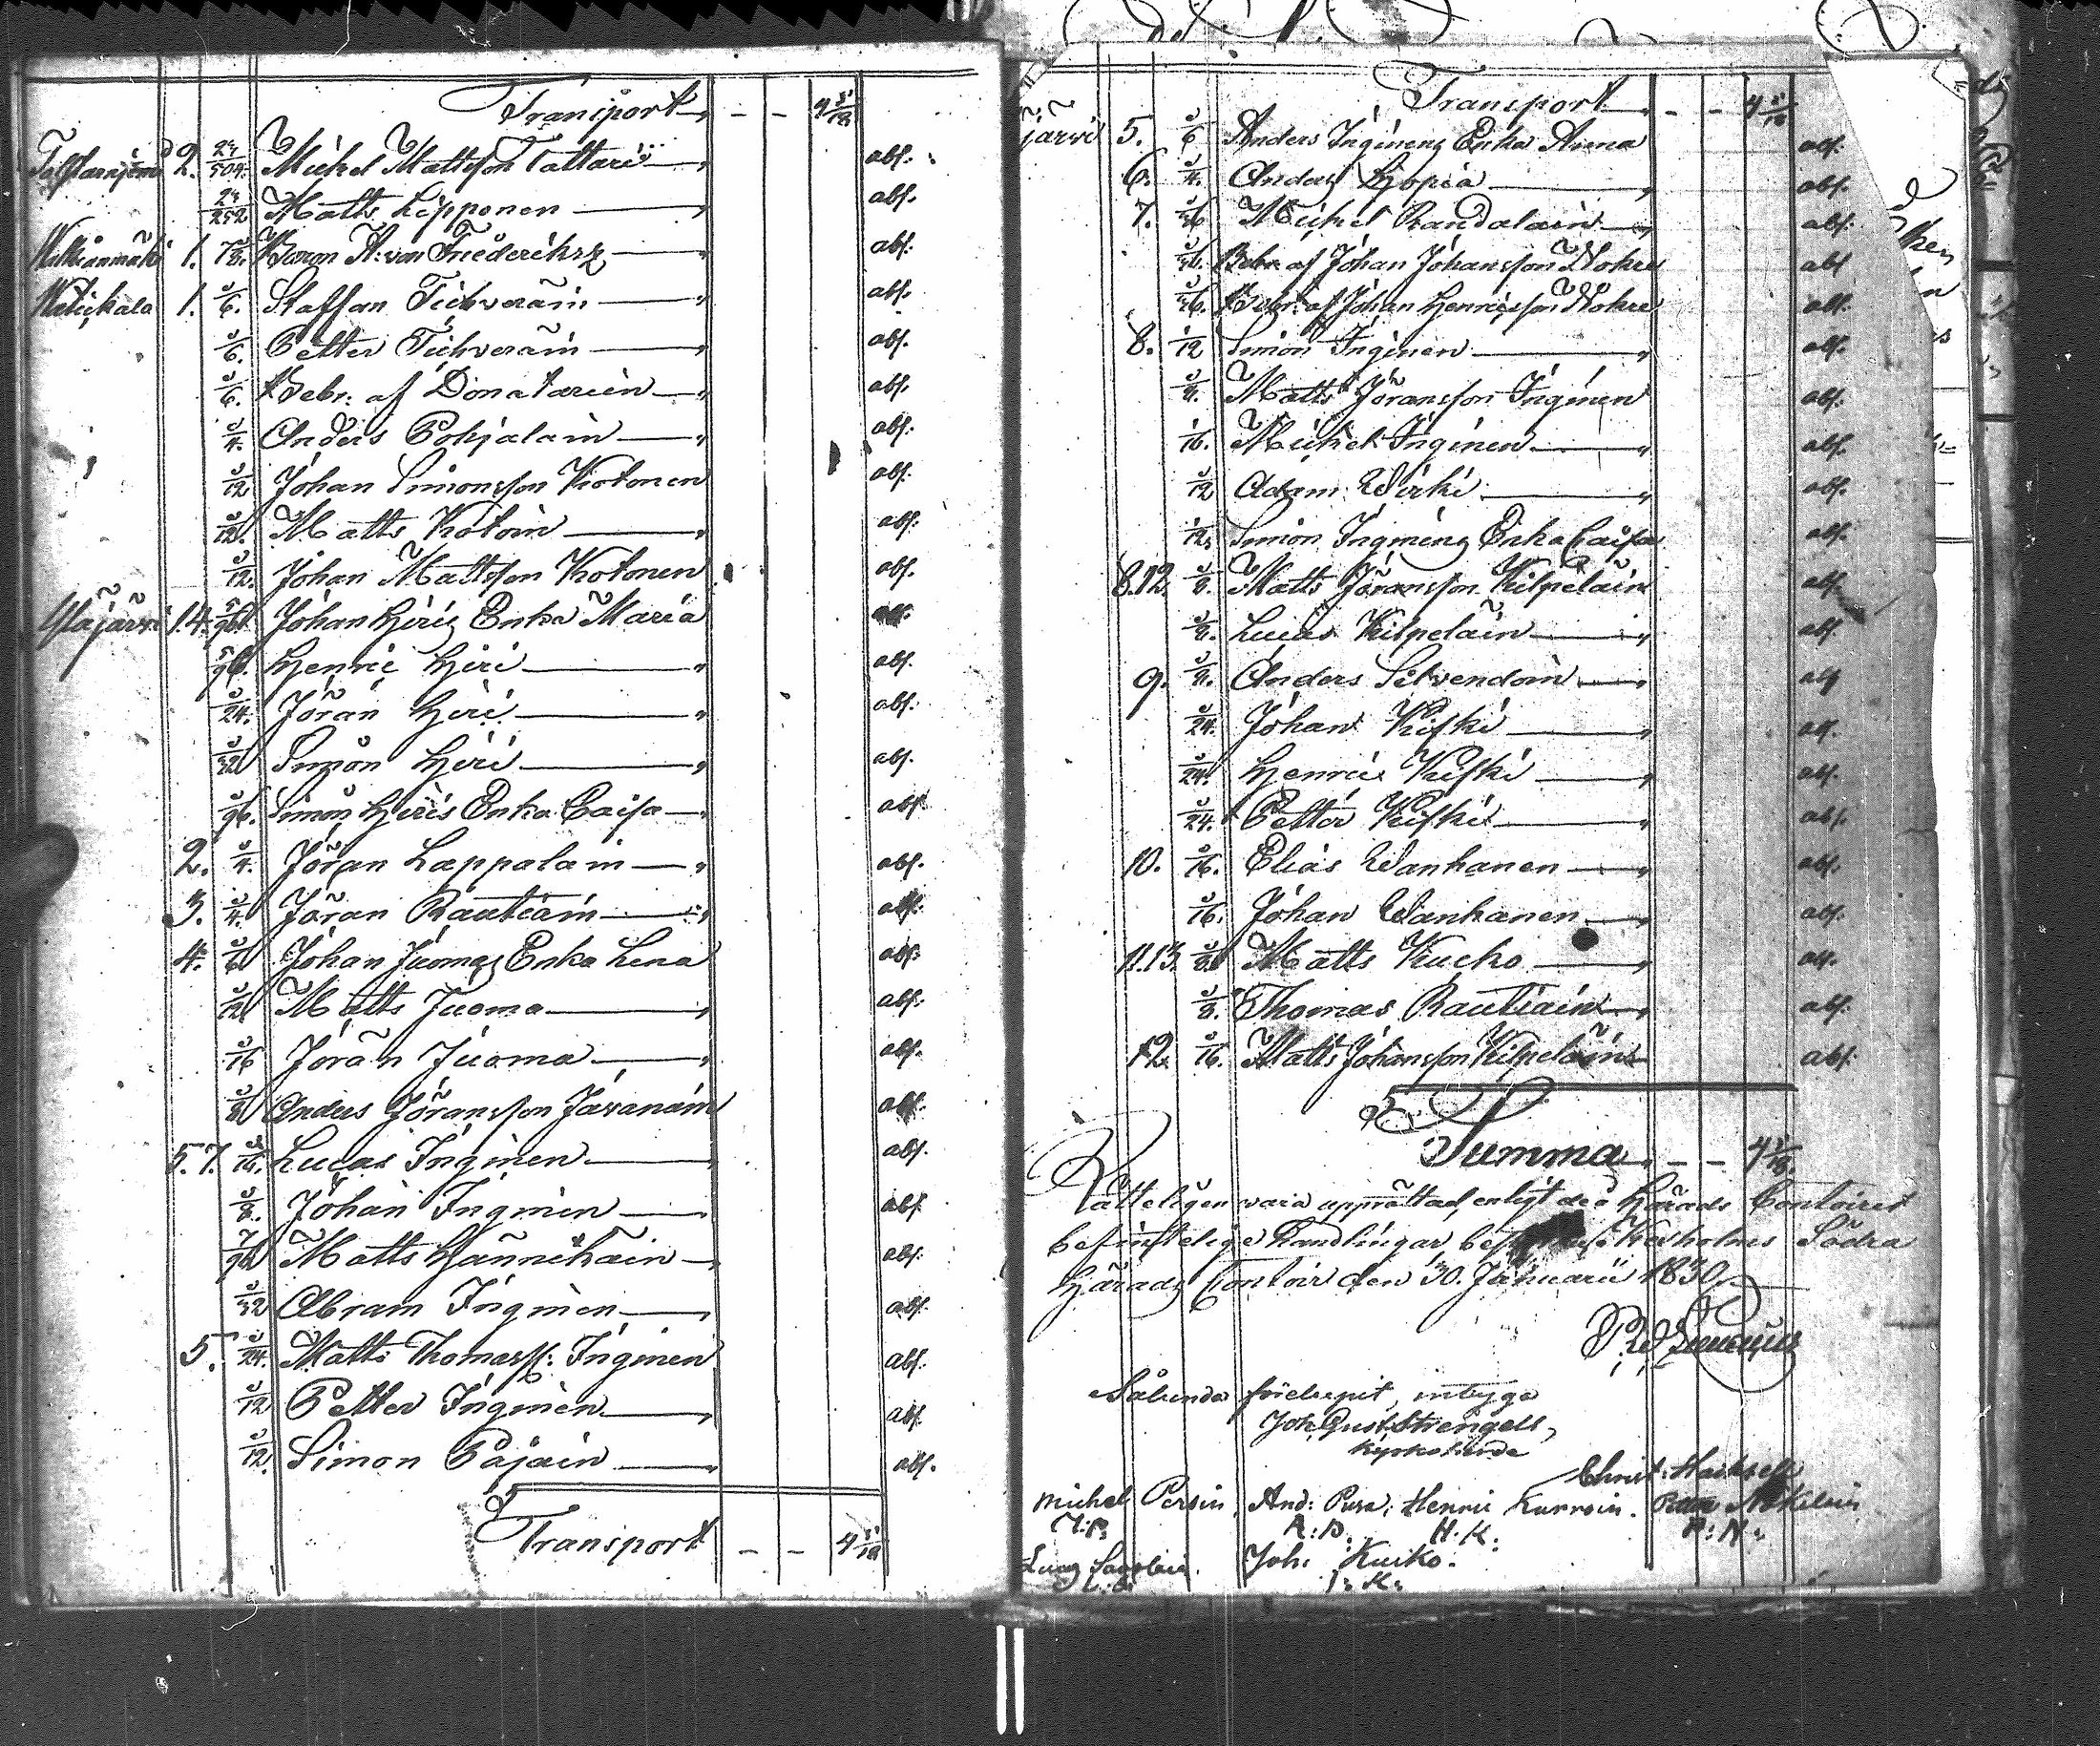 Transport - - 4 5/18
2. 25/504. Michel Mattsson Tattari abs.
25/252 Matts Kipponen abs.
1. 7/8. Baron A: von Friederikrz abs.
1. 1/6. Staffan Tichverain abs.
1/6. Petter Tichverain abs.
1/6. Bebr: af Donatarien abs.
1/4. Anders Pohjalain abs.
1/12 Johan Simonsson Kotonen abs.
1/12. Matts Kotoin abs.
1/12. Johan Mattsson Kotonen abs.
Yläjärvi 1.4. 5/96. Johan Hiris Enka Maria abs.
5/96. Henric Hiri abs.
1/24. Jöran Hiri abs.
1/32 Simon Hiri abs.
1/96. Simon Hiris Enka Caisa abs.
2. 1/4. Jöran Lappalain abs.
3. 1/4. Jöran Rautiain abs.
4. 1/6 Johan Juomas Enka Lena abs.
1/12 Matts Juoma abs.
1/16 Jöran Juoma abs.
1/8 Anders Jöransson Javanain abs.
5.7. /16. Lucas Inginen abs.
1/8. Johan Inginen abs.
7/96 Matts Hännikäin abs.
1/32 Abram Inginen abs.
5. 1/24. Matts Thomass: Inginen abs.
1/12 Petter Inginen abs.
1/12. Simon Pajain abs.
Transport - - 4 5/18
Transport - - 4 5/18
järvi 5. 1/6 Anders Inginens Enka Anna abs.
6. 1/4. Anders Hopia abs.
7. Michel Randalain abs.
Bebr. af Johan Johansson Nokre abs
Bebr: af Johan Henricsson Nokre abs.
8. 1/12 Simon Inginen abs.
1/8. Matts Jöransson Inginen abs.
1/16. Michel Inginen abs.
1/12 Adam Wirki abs.
1/12. Simon Inginens Enka Caisa abs.
8.12. 1/8. Matts Jöransson Kilpeläin abs.
1/8. Lucas Kilpeläin abs.
9. 1/8. Anders Silvendoin abs
1/24. Johan Kiski abs.
1/24. Henric Kiski abs.
1/24. Petter Kiski abs.
10. 1/16. Elias Wanhanen abs.
1/16. Johan Wanhanen abs.
11.13. 1/8. Matts Kucko abs.
1/8. Thomas Rautiain abs.
12. 1/16. Matts Johansson Kilpeläin abs.
Summa - - 4 5/18.
Rätteligen vara upprättad, enligt de i Härads Contoiret
befintelige Handlingar, Kexholms Södra
Härads Contoir den 30. Januarii 1830.
Sålunda förelupit, intyga
Joh. Gust. Strengell,
Kyrkoherde
Michel Persin, And: Pura, Henric Kurroin.
M:P. A:P. H:K. P:N:
Joh: Kuiko.
J: K: